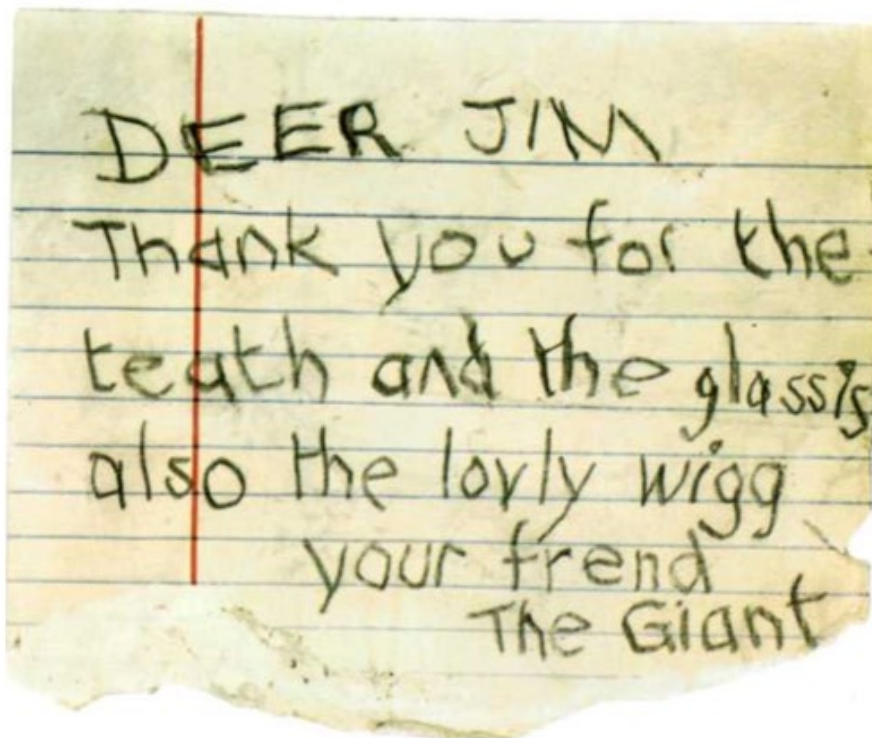 DEER JIM
Thank you for the
teath and the glassis
also the lovly wigg
your frend
The Giant